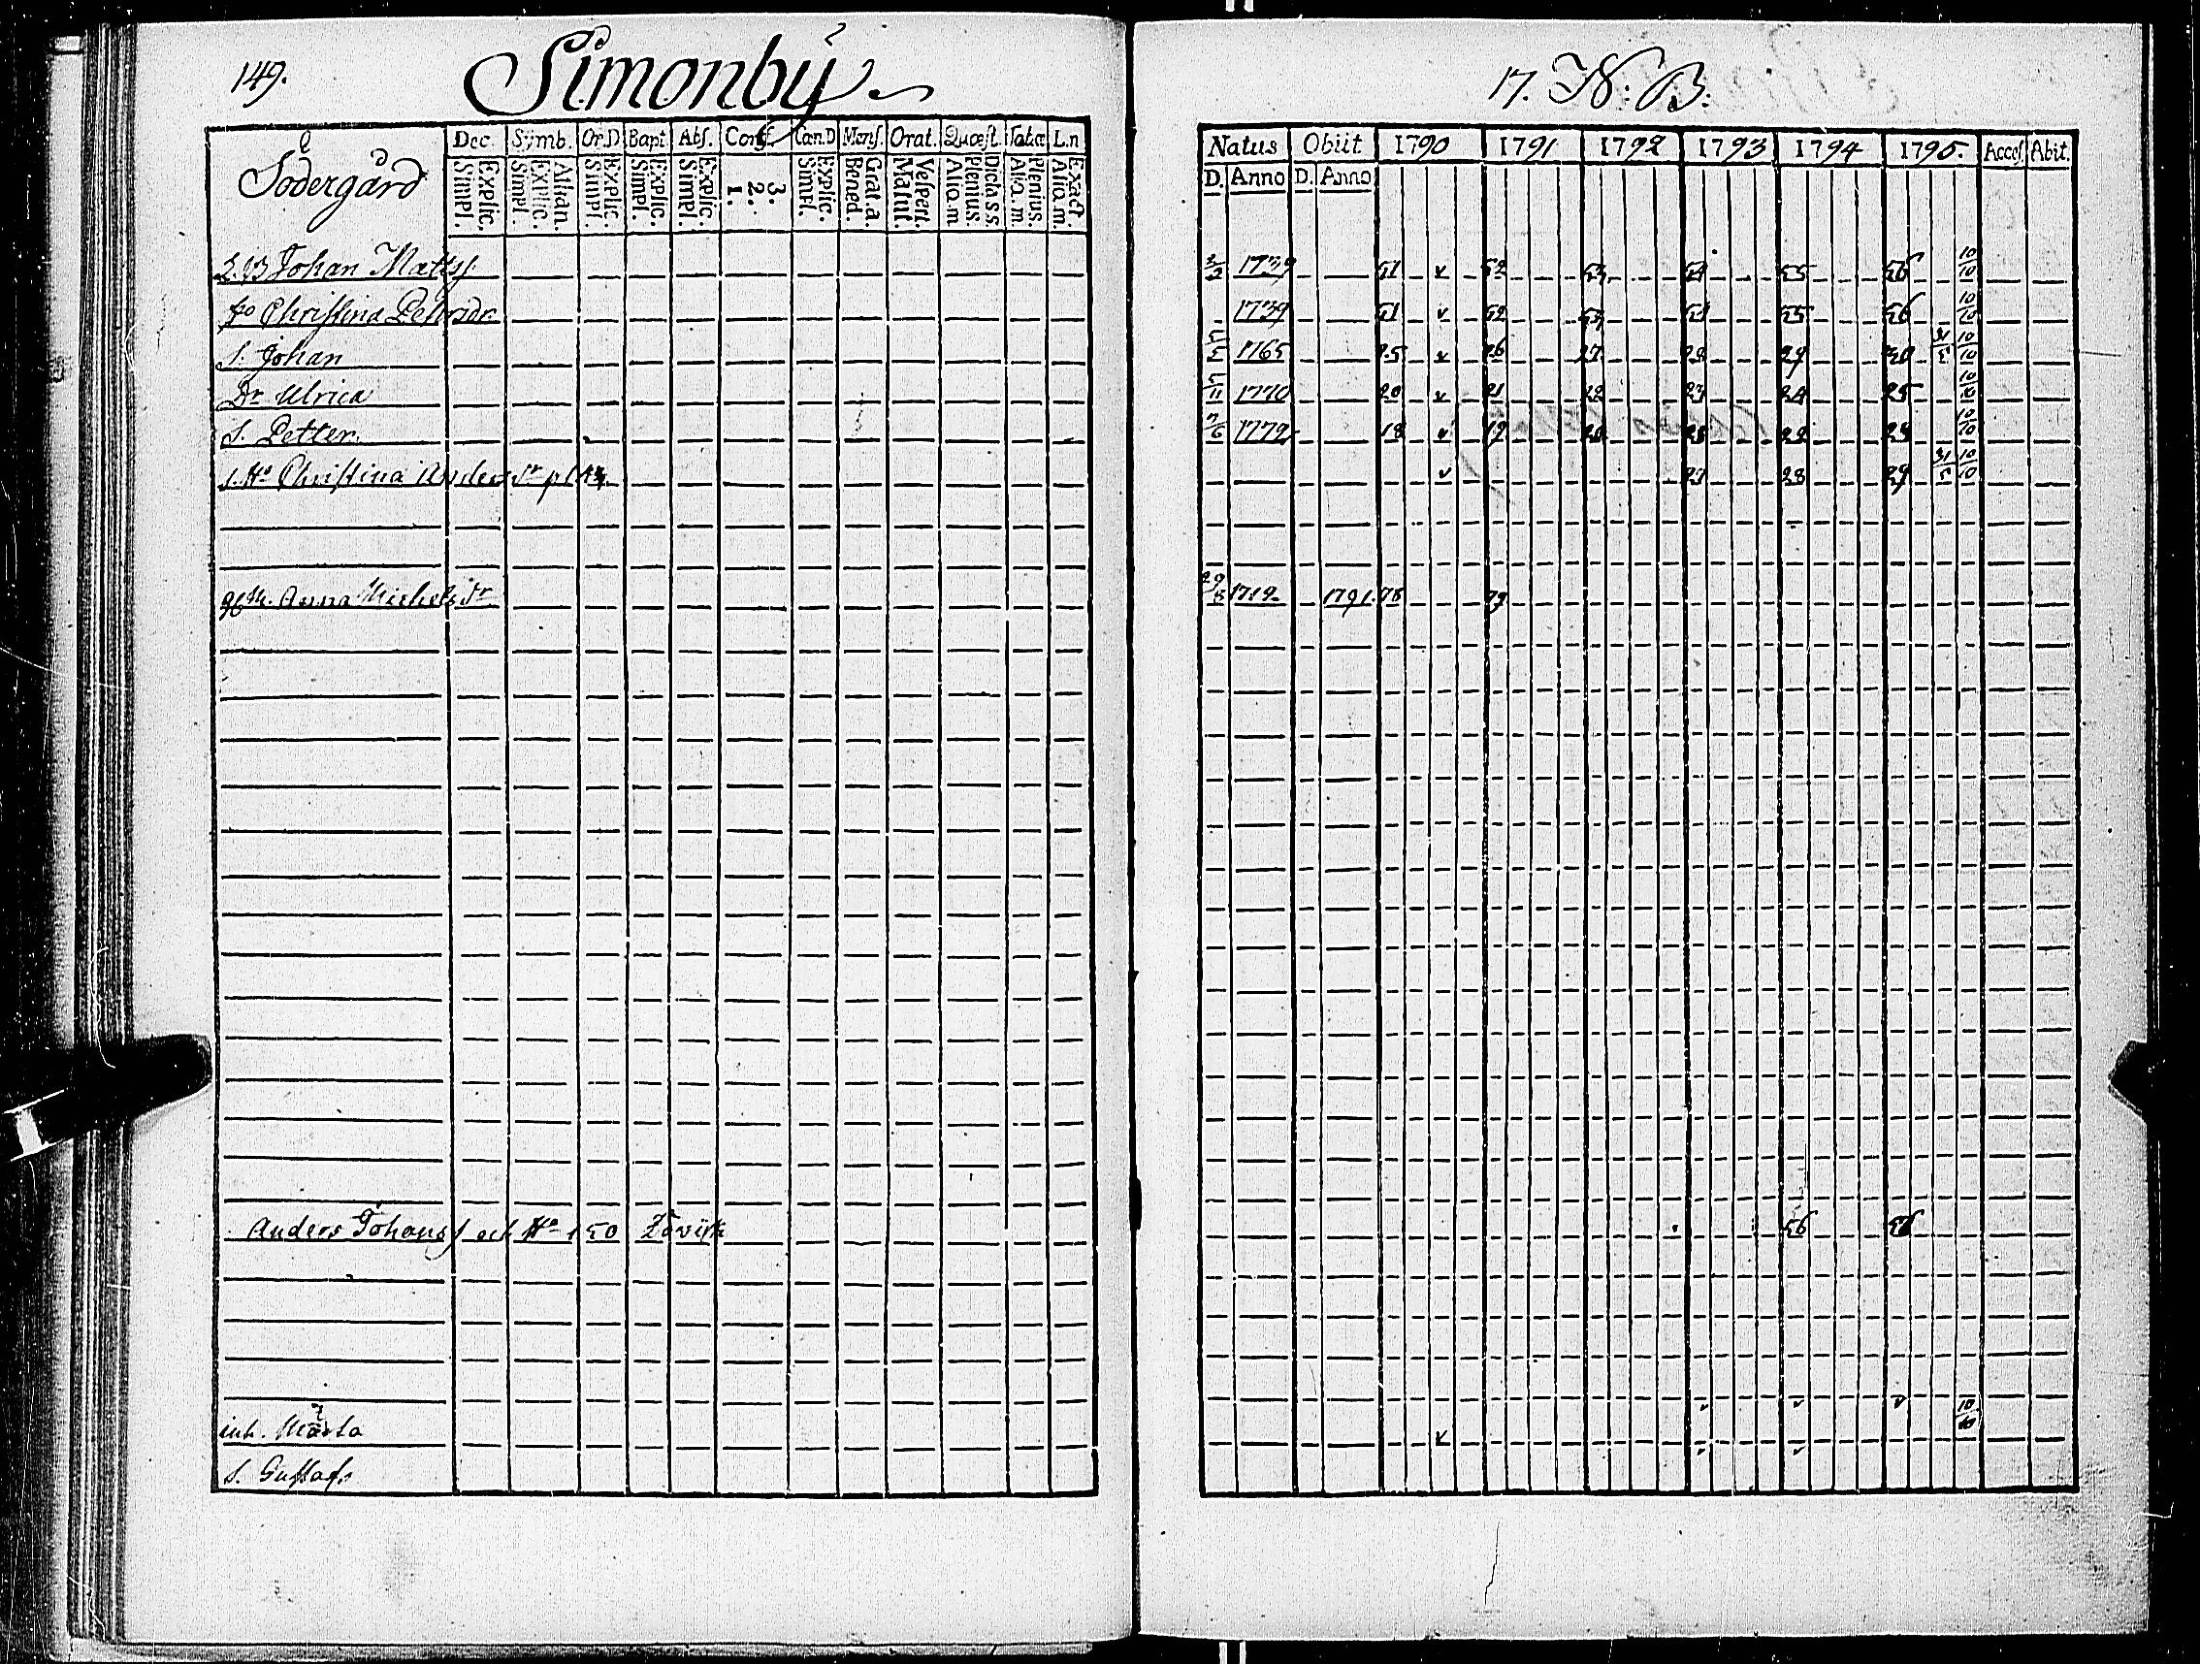 149. Simonbÿ.
Södergård
Dec. Sÿmb. Or.D Bapt. Abs. Conf. Can.D Mens. Orat. Quæst. Tabæ L.n
Explic. Simpl. Athan. Explic. Simpl. Explic. Simpl. Explic. Simpl. Explic. Simpl. 3. 2. 1. Explic. Simpl. Grat.a. Bened. Vespert. Matut. Dicta s.s. Plenius. Aliq.m Plenius. Aliq.m. Exact. Aliq.m.
Johan Matss.
Ho Christina Pehrsdr.
S. Johan
Dr Ulrica
S. Petter.
S. Ho Christina Andersdr p 143.
Anna Michelsdr
Anders Johanss och Ho 150
inh. Märta
S. Gustaf.
17. N: B:
Natus Obiit 1790 1791 1792 1793 1794 1795. Access. Abit.
D. Anno D. Anno
2/2 1739 51 v 52 53 54 55 56 10/10
1739 51 v 52 53 54 55 56 10/10
5/5 1765 25 v 26 27 28 29 30 31/5 10/10
5/11 1770 20 v 21 22 23 24 25 10/10
7/6 1772 18 v 19 20 22 23 10/10
v 27 28 29 31/5 10/10
29/8 1712 1791 78 79
56
v v v 10/10
v v v